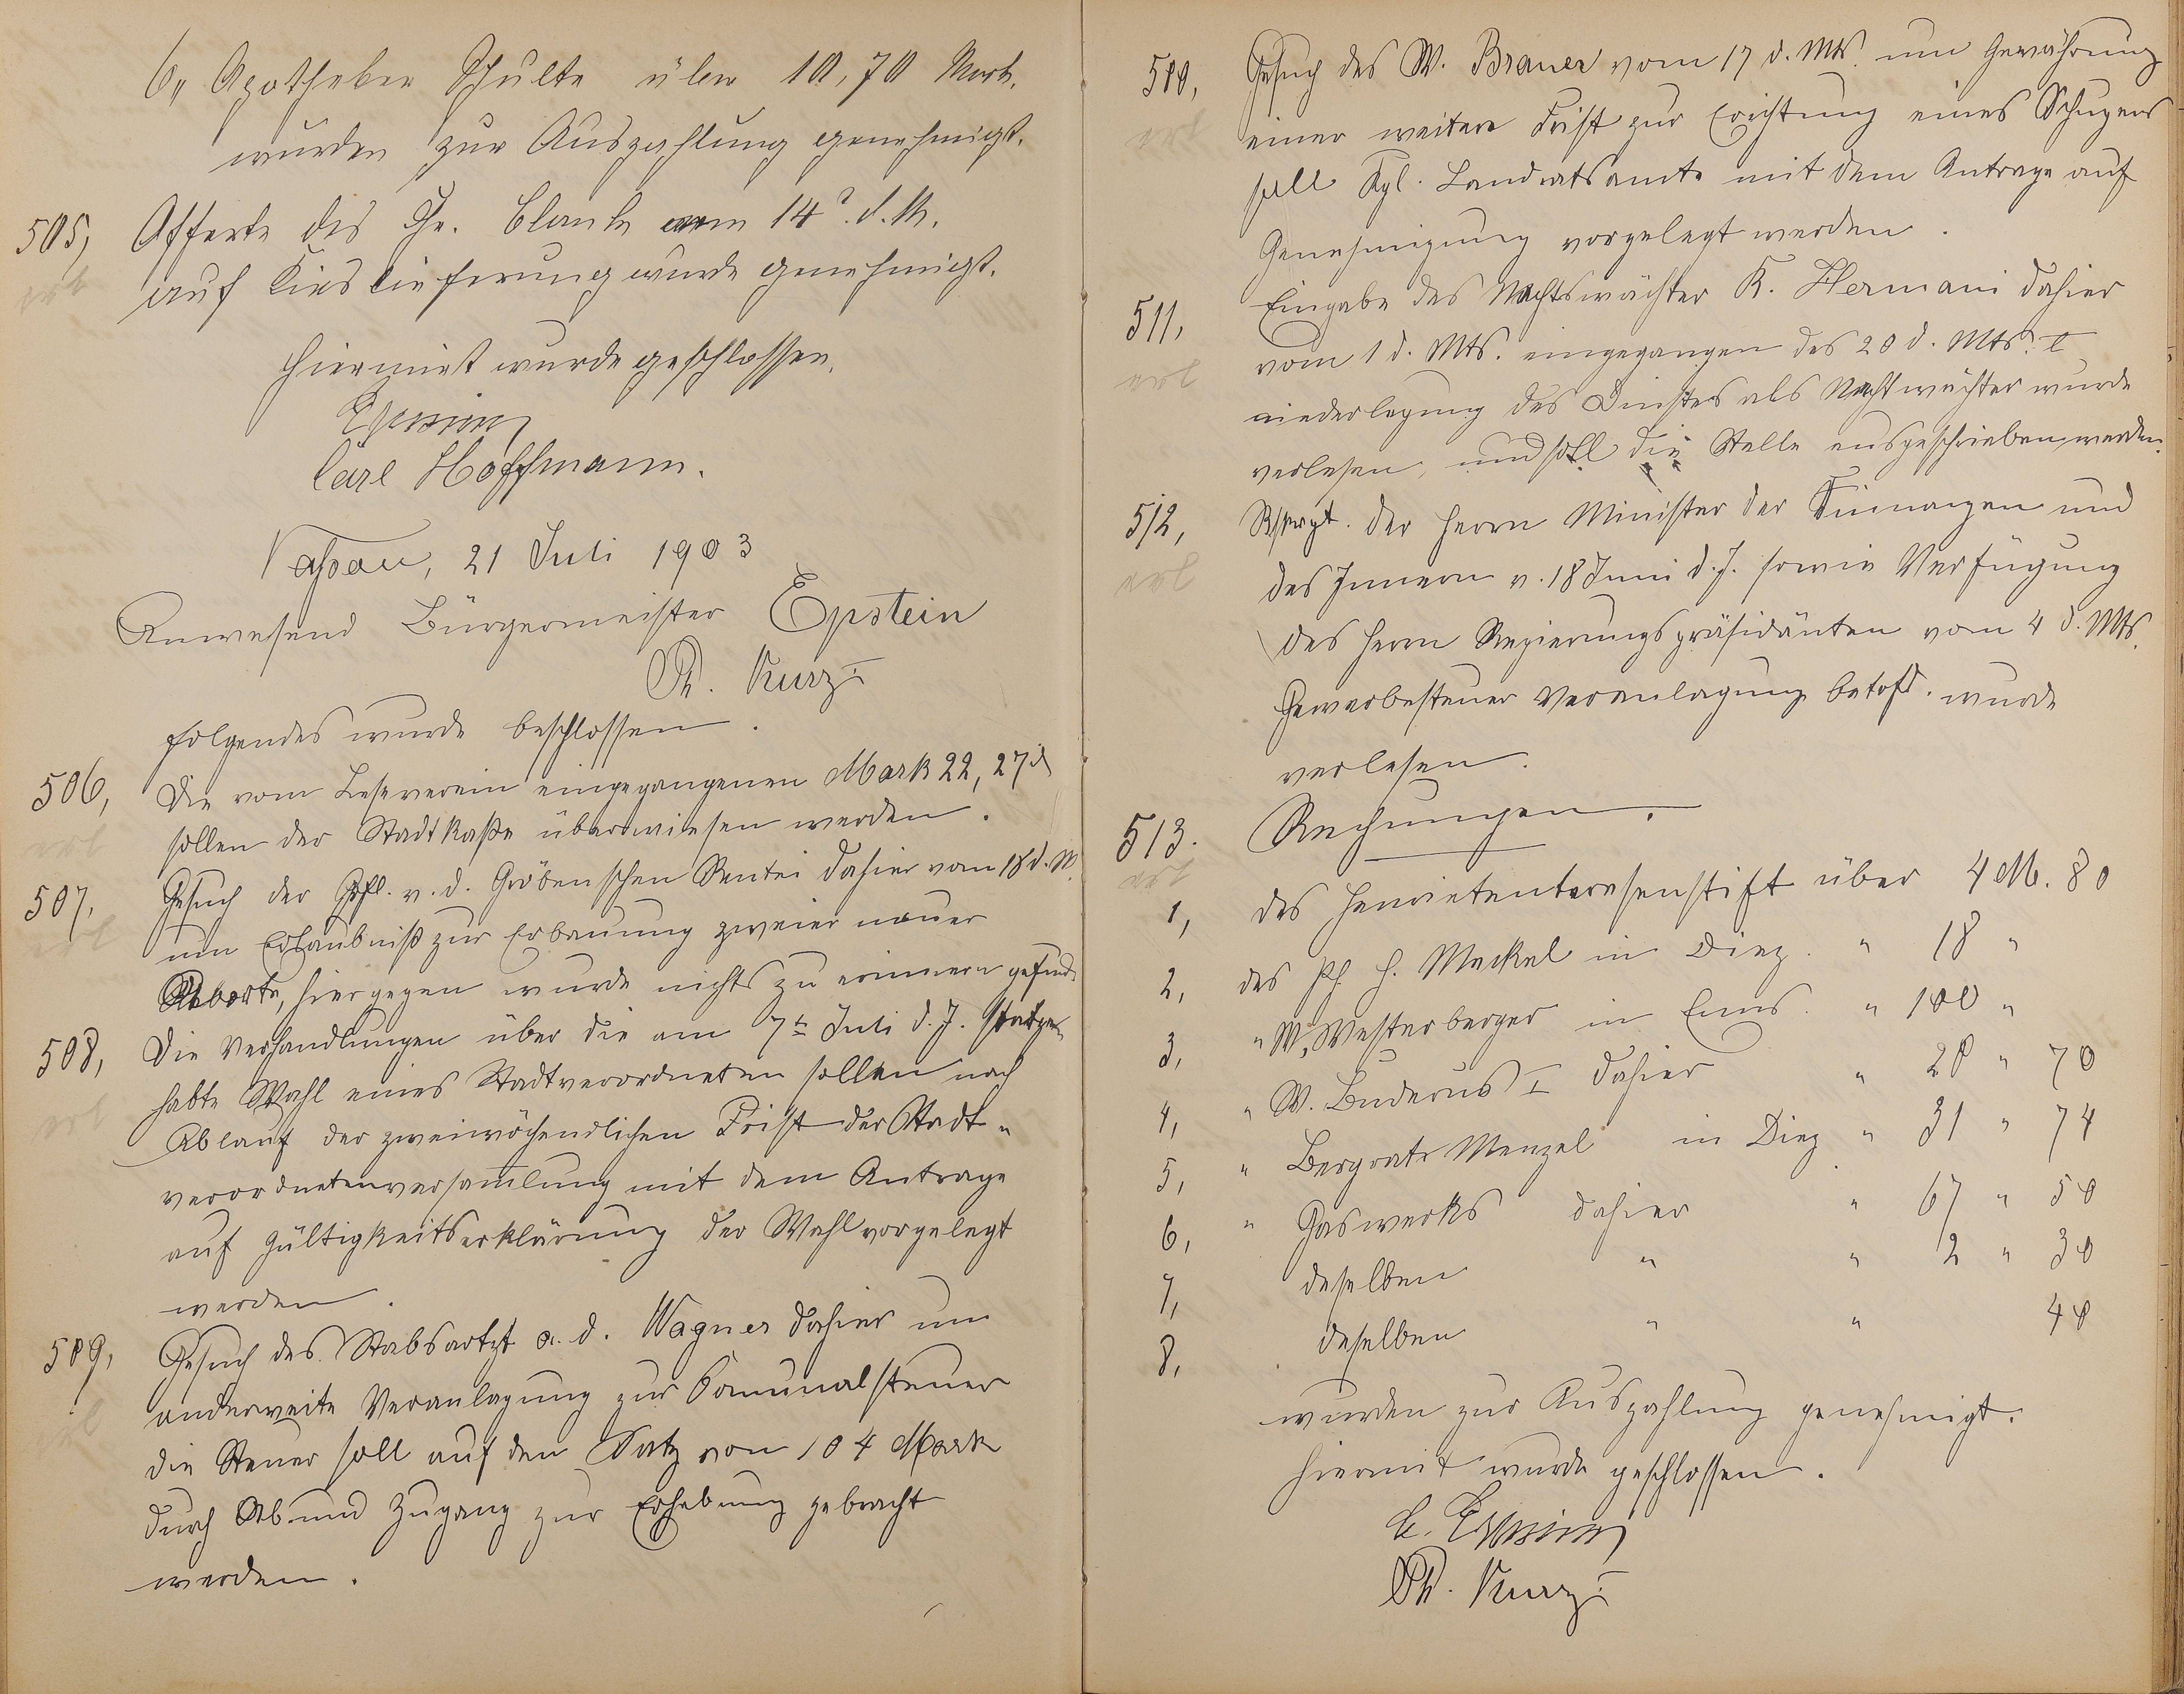 6, Apotheker Schulte über 10,70 Mark.
wurden zur Auszahlung genehmigt.
505, Offerte des Chr. vom 14. d. M.
auf Kieslieferung wurde genehmigt.
Hiermit wurde geschlossen.
Epstein
Carl Hoffmann.
Nassau, 21 Juli 1903
Anwesend Bürgermeister Epstein
Ph. Kurz I
folgendes wurde beschlossen.
506, Die vom Leseverein eingegangenen Mark 22,27 d
sollen der Stadtkaße überwiesen werden.
507, Gesuch der Grfl. v. d. Gröbenschen Rentei dahier vom 18 d. M.
um Erlaubniß zur Erbauung zweier neuer
Aborte, hiergegen wurde nichts zu erinnern gefund.
508, Die Verhandlungen über die am 7ten Juli d. J. statge-
habte Wahl eines Stadtverordneten sollen nach
Ablauf der zweiwöchendlichen Frist der Stadt-
verordnetenversamlung mit dem Antrage
auf Gültigkeitserklärung der Wahl vorgelegt
werden.
509, Gesuch des Stabsartzt a. d. Wagner dahier um
anderweite Veranlagung zur Comunalsteuer
die Steuer soll auf den Satz von 104 Mark
durch Ab und Zugang zur Erhebung gebracht
werden.
510, Gesuch des W. Brauer vom 17 d. Mts. um Gewährung
einer weitere Frist zur Erichtung eines Schupens
soll Kgl. Landratsamte mit dem Antrage auf
Genehmigung vorgelegt werden.
511, Eingabe des Nachtswächter K. Hermani dahier
vom 1 d. Mts. eingegangen des 20 d. Mts.
niederlegung des Dinstes als Nachtwächter wurde
verlesen, und soll die Stelle ausgeschrieben werden.
512, Rskrpt. der Herrn Minister der Finnanzen und
des Innern v. 18 Juni d. J. sowie Verfügung
des Herrn Regierungspräsidänten vom 4 d. Mts.
Gewerbesteuer Veranlagung betrfd. wurde
verlesen.
513. Rechnungen.
1, des Henrietenteresenstift über 4 M. 80
2, des Ph. H. Meckel in Diez. " 18 "
3, " W. Westerberger in Ems. " 100 "
4, " W. Buderus I dahier " 20 " 70
5, " Bergrats Menzel in Diez " 31 " 74
6, " Gaswerks dahier " 67 " 50
7, deselben " " 2 " 30
8, deselben " " 40
wurden zur Auszahlung genehmigt.
Hiermit wurde geschlossen.
E. Epstein
Ph. Kurz I